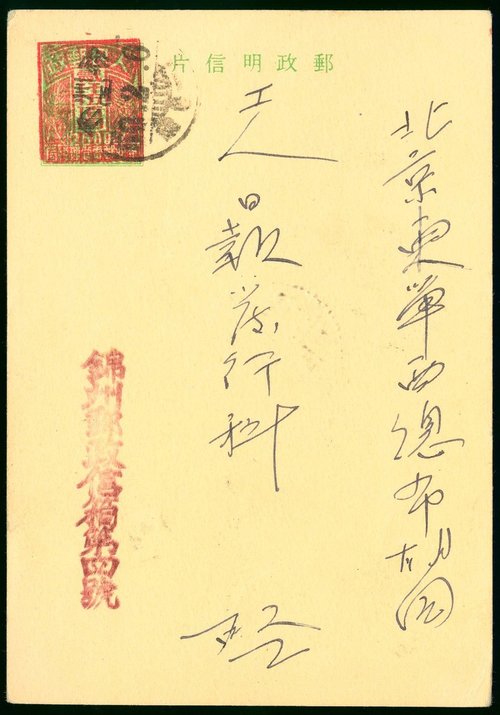 郵政明信片
北京東單西總布胡同
工人日報發行科
錦州郵政信箱第四號